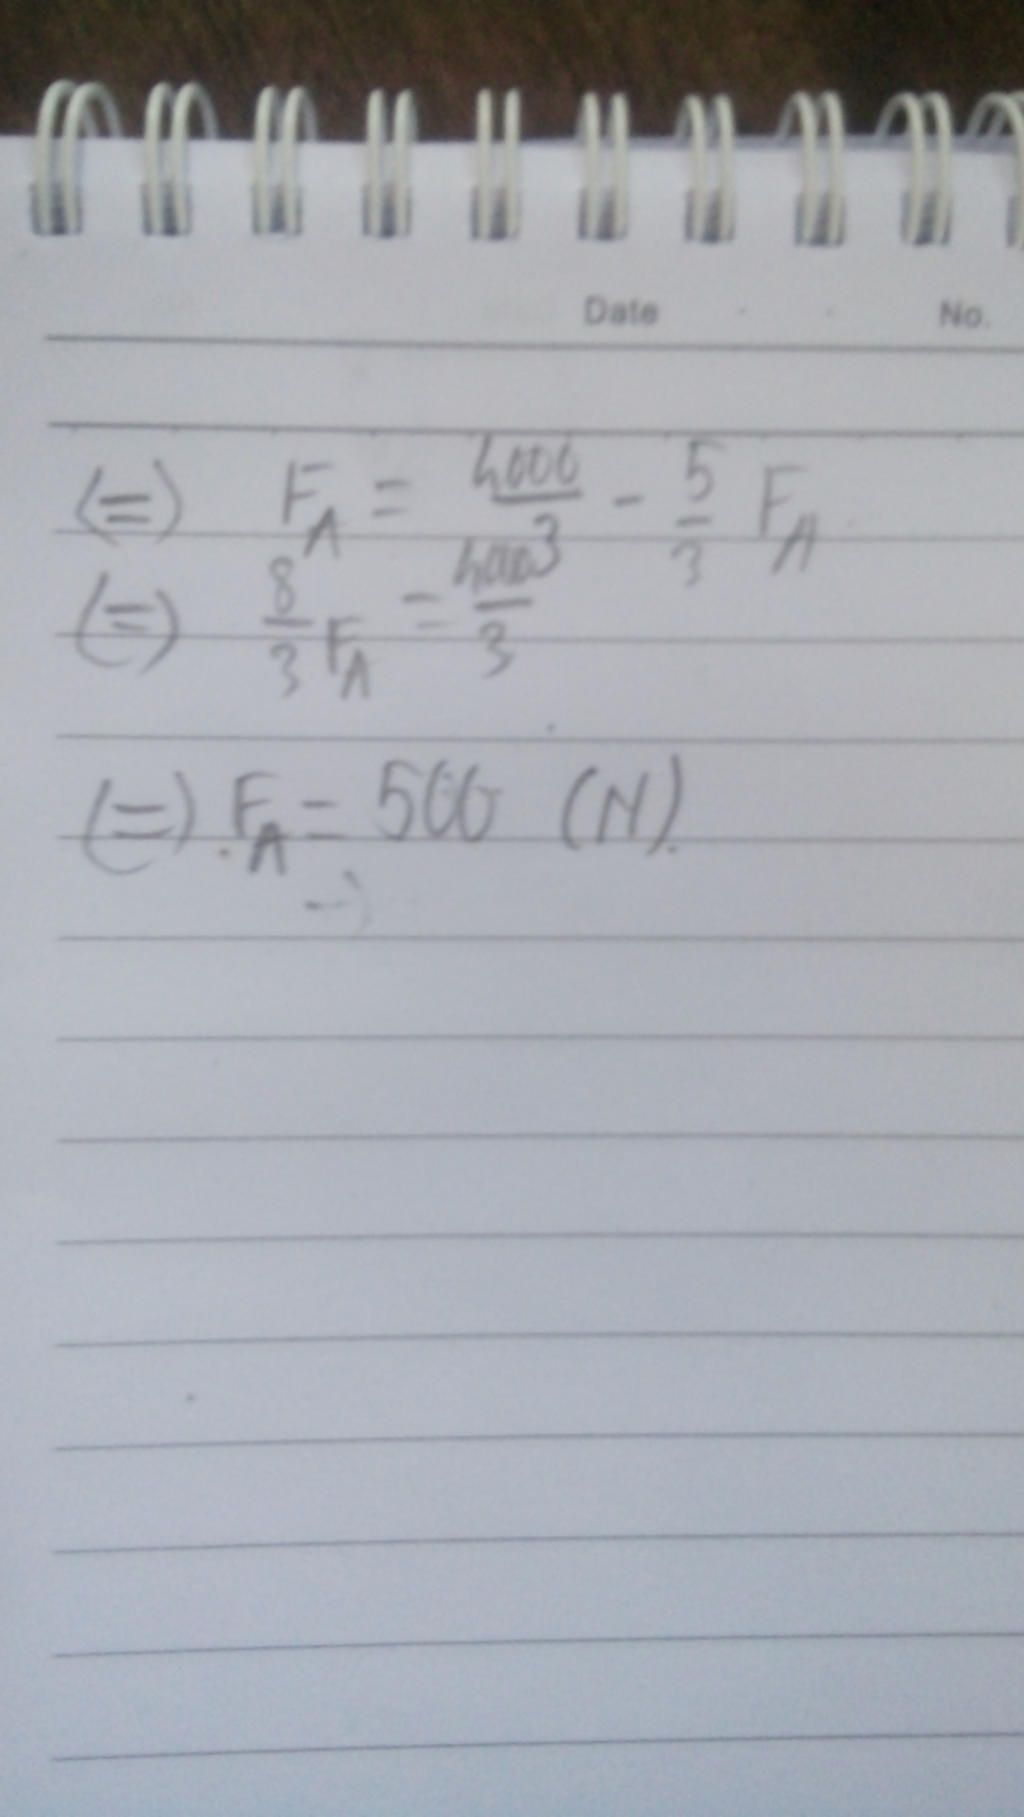 Date No.
(=) F_A = 4000/3 - 5/3 F_A
(=) 8/3 F_A = 4000/3
(=) F_A = 500 (N).